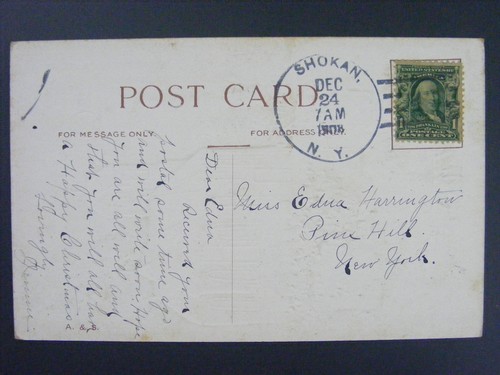 POST CARD
FOR MESSAGE ONLY
FOR ADDRESS
SHOKAN,
DEC
24
7AM
N. Y.
Dear Edna
Received your
postal some time ago
and will write soon. Hope
you are all well and
Wish you will all have
a Happy Christmas
Miss Edna Harrington
Pine Hill.
New York.